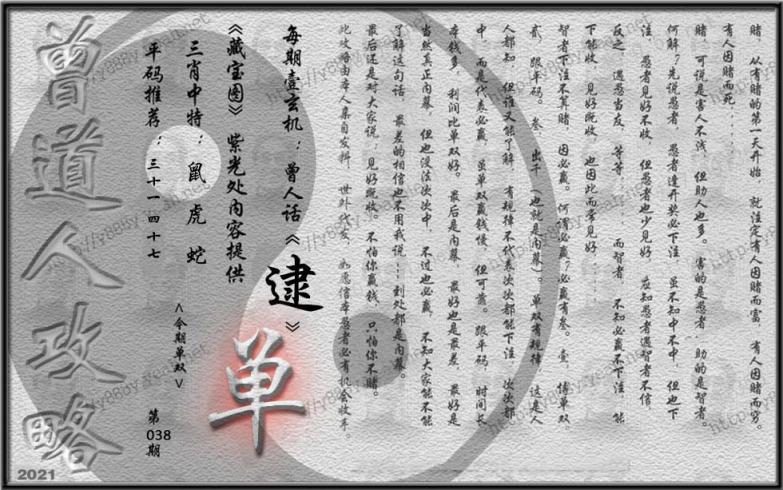 赌，从有赌的第一天开始，就注定有人因赌而富，有人因赌而穷。
有人因赌而死……
赌，可说是害人不浅，但助人也多。害的是愚者，助的是智者。
何解？先说愚者，愚者逢开奖必下注，虽不知中不中，但也下
注，愚者见好不收，但愚者也少见好，应知愚者遇智者不信，
反之，遇愚当友，等等，而智者，不知必赢不下注，能
下能收，见好既收，也因此而常见好……
智者下注不算赌，因必赢。何谓必赢？必赢有叁。壹，博单双
贰，跟平码。叁，出千（也就是内幕）。单双有规律，这是人
人都知，但谁又能了解，有规律不代表次次都能下注，次次都
中，而是代表必赢，虽单双赢钱慢，但可靠。跟平码，时间长
本钱多，利润比单双好。最后是内幕，最好也是最差，最好是
当然真正内幕，但也没法次次中，不过也必赢，不知大家能不能
了解这句话，最差的相信也不用我说……到处都是内幕。
最后还是对大家说：见好既收。不怕你赢钱，只怕你不赌。
此攻略由本人亲自发料，世外代发，如愿信本愚者必有机会收丰。
每期壹玄机：曾人话《逮》
《藏宝图》紫光处内容提供
三肖中特：鼠 虎 蛇
平码推荐：三十一 四十七
＜今期单双＞
单
第038期
曾道人攻略
2021